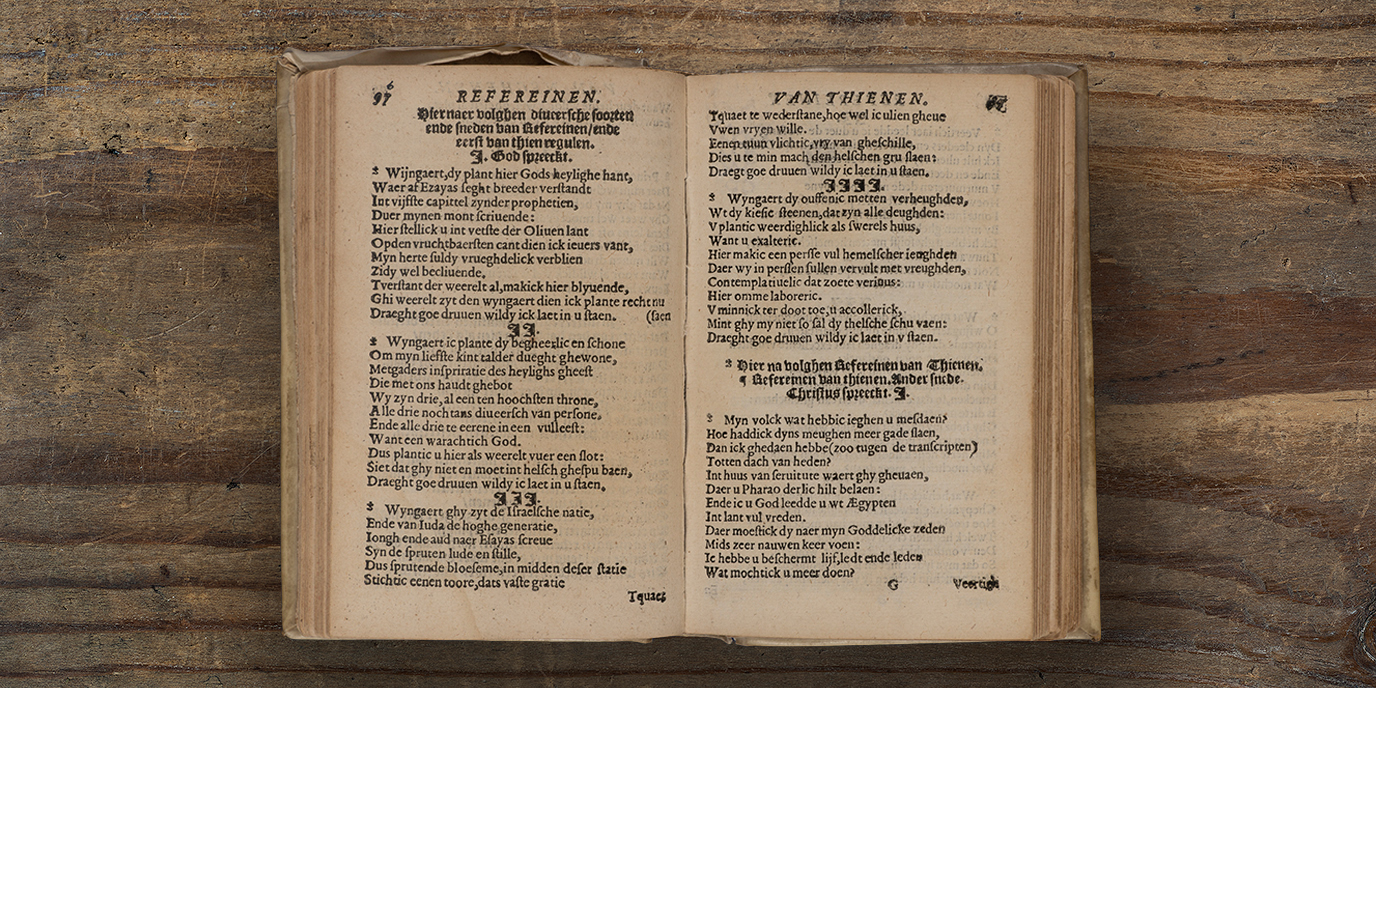 97 REFEREINEN.
Hier naer volghen diuersche soorten
ende sneden van Refereinen/ende
eerst van thien regulen.
I. God spreeckt.
Wijngaert, dy plant hier Gods heylighe hant,
Waer af Ezayas seght breeder verstandt
Int vijfste capittel zynder prophetien,
Duer mynen mont scriuende:
Hier stellick u int vetste der Oliuen lant
Op den vruchtbaersten cant dien ick ieuers vant,
Myn herte suldy vrueghdelick verblien
Zidy wel becliuende,
Tverstant der weerelt al, makick hier blyuende,
Ghi weerelt zyt den wyngaert dien ick plante recht nu
Draeght goe druuen wildy ick laet in u staen. (saen
II.
Wyngaert ic plante dy begheerlic en schone
Om myn liefste kint talder dueght ghewone,
Metgaders inspriratie des heylighs gheest
Die met ons haudt ghebot
Wy zyn drie, al een ten hoochsten throne,
Alle drie noch tans diuersch van persone,
Ende alle drie te eerene in een vulleest:
Want een warachtich God.
Dus plantic u hier als weerelt vuer een slot:
Siet dat ghy niet en moet int helsch ghespu baen,
Draeght goe druuen wildy ic laet in u staen,
III.
Wyngaert ghy zyt de Israelsche natie,
Ende van Iuda de hoghe generatie,
Iongh ende aud naer Esayas screue
Syn de spruten lude en stille,
Dus sprutende bloeseme, in midden deser statie
Stichtic eenen toore, dats vaste gratie
Tquaet
VAN THIENEN.
Tquaet te wederstane, hoe wel ic ulien gheue
Vwen vryen wille.
Eenen tuun vlichtic, vry van gheschille,
Dies u te min mach den helschen gru slaen:
Draegt goe druuen wildy ic laet in u staen.
IIII.
Wyngaert dy ouffenic metten verheughden,
Wt dy kiesic steenen, dat zyn alle deughden:
V plantic weerdighlick als swerels huus,
Want u exalteric.
Hier makic een persse vul hemelscher ieughden
Daer wy in perssen sullen vervult met vreughden,
Contemplatiuelic dat zoete verious:
Hier omme laboreric.
V minnick ter doot toe, u accollerick,
Mint ghy my niet so sal dy thelsche schu vaen:
Draeght goe druuen wildy ic laet in v staen.
Hier na volghen Refereinen van Thienen.
¶ Refereinen van thienen. Ander snede.
Christus spreeckt. I.
Myn volck wat hebbic ieghen u mesdaen?
Hoe haddick dyns meughen meer gade slaen,
Dan ick ghedaen hebbe (zoo tugen de transcripten)
Totten dach van heden?
Int huus van seruiture waert ghy gheuaen,
Daer u Pharao derlic hilt belaen:
Ende ic u God leedde u wt Ægypten
Int lant vul vreden.
Daer moestick dy naer myn Goddelicke zeden
Mids zeer nauwen keer voen:
Ic hebbe u beschermt lijf, ledt ende leden
Wat mochtick u meer doen?
G Veertich